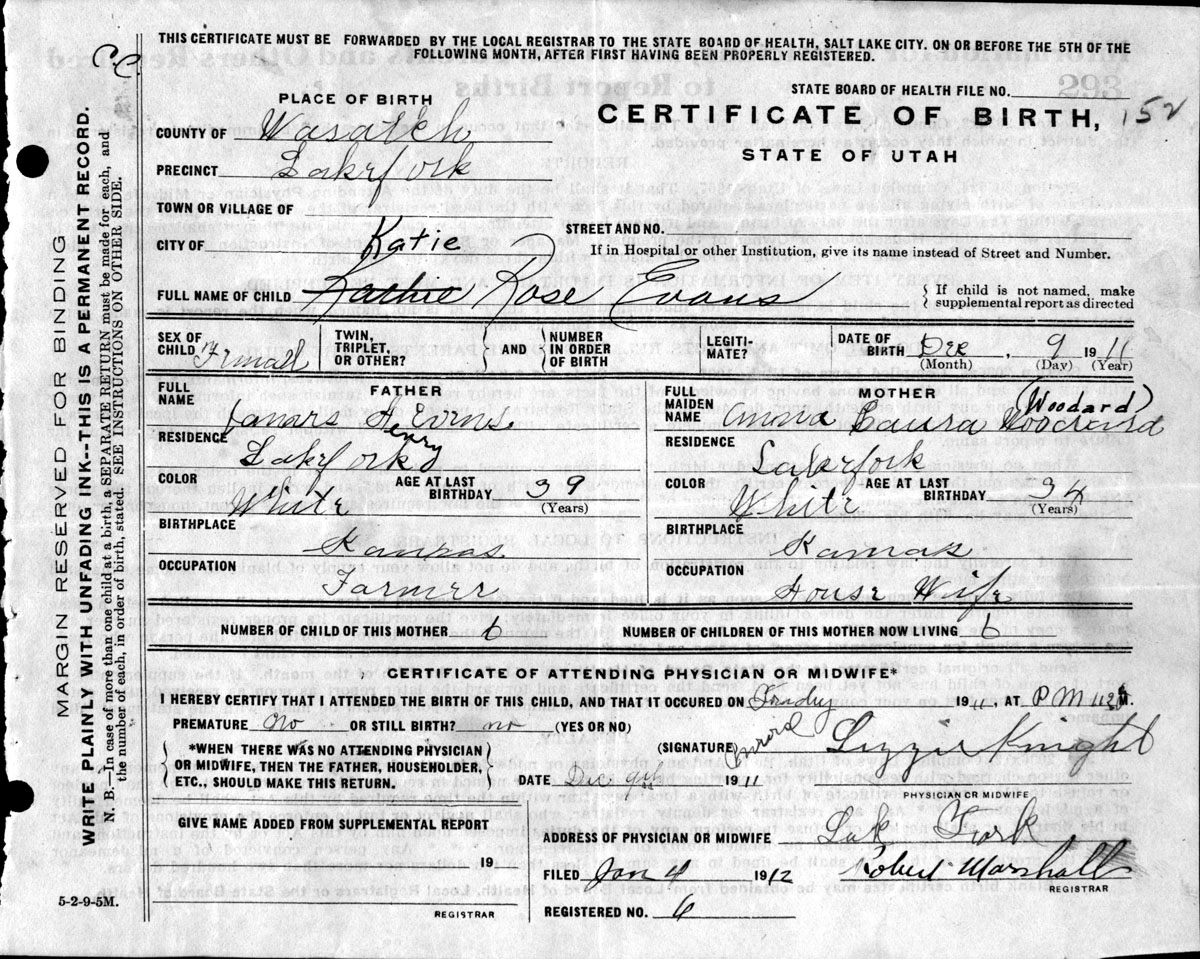 THIS CERTIFICATE MUST BE FORWARDED BY THE LOCAL REGISTRAR TO THE STATE BOARD OF HEALTH, SALT LAKE CITY. ON OR BEFORE THE 5TH OF THE
FOLLOWING MONTH, AFTER FIRST HAVING BEEN PROPERLY REGISTERED.
C.C.
MARGIN RESERVED FOR BINDING
WRITE PLAINLY WITH UNFADING INK--THIS IS A PERMANENT RECORD.
N. B.—In case of more than one child at a birth, a SEPARATE RETURN must be made for each, and
the number of each, in order of birth, stated. SEE INSTRUCTIONS ON OTHER SIDE.
STATE BOARD OF HEALTH FILE NO.
PLACE OF BIRTH
CERTIFICATE OF BIRTH, 152
COUNTY OF Wasatch
STATE OF UTAH
PRECINCT Lakefork
TOWN OR VILLAGE OF
STREET AND NO.
CITY OF
If in Hospital or other Institution, give its name instead of Street and Number.
Katie
FULL NAME OF CHILD Kathie Rose Evans
If child is not named, make
supplemental report as directed
SEX OF CHILD Femall
TWIN, TRIPLET, OR OTHER?
AND
NUMBER IN ORDER OF BIRTH
LEGITI-MATE?
DATE OF BIRTH Dec, 9 1911
(Month) (Day) (Year)
FATHER
FULL NAME James H Evins
Henry
RESIDENCE Lakefork
COLOR White
AGE AT LAST BIRTHDAY 39
(Years)
BIRTHPLACE Kanzas
OCCUPATION Farmer
MOTHER
FULL MAIDEN NAME Laura
(Woodard)
RESIDENCE Lakefork
COLOR White
AGE AT LAST BIRTHDAY
(Years)
BIRTHPLACE
OCCUPATION House Wife
NUMBER OF CHILD OF THIS MOTHER 6
NUMBER OF CHILDREN OF THIS MOTHER NOW LIVING 6
CERTIFICATE OF ATTENDING PHYSICIAN OR MIDWIFE*
I HEREBY CERTIFY THAT I ATTENDED THE BIRTH OF THIS CHILD, AND THAT IT OCCURED ON 1911, AT P M M.
PREMATURE no OR STILL BIRTH? no (YES OR NO)
*WHEN THERE WAS NO ATTENDING PHYSICIAN
OR MIDWIFE, THEN THE FATHER, HOUSEHOLDER,
ETC., SHOULD MAKE THIS RETURN.
(SIGNATURE) Lizzie Knight
DATE Dec 9th 1911
PHYSICIAN OR MIDWIFE
GIVE NAME ADDED FROM SUPPLEMENTAL REPORT
19
REGISTRAR
ADDRESS OF PHYSICIAN OR MIDWIFE Lak Fork
FILED Jan 4 1912 Robert Marshall
REGISTRAR
REGISTERED NO. 6
5-2-9-5M.